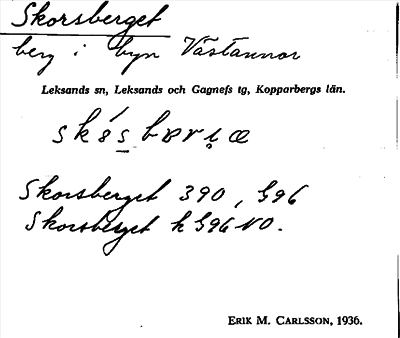 Skorsberget
berg i byn Västannor
Leksands sn, Leksands och Gagnefs tg, Kopparbergs län.
Skorsberget 390, G96
Skorsberget h G96 NO.
ERIK M. CARLSSON, 1936.